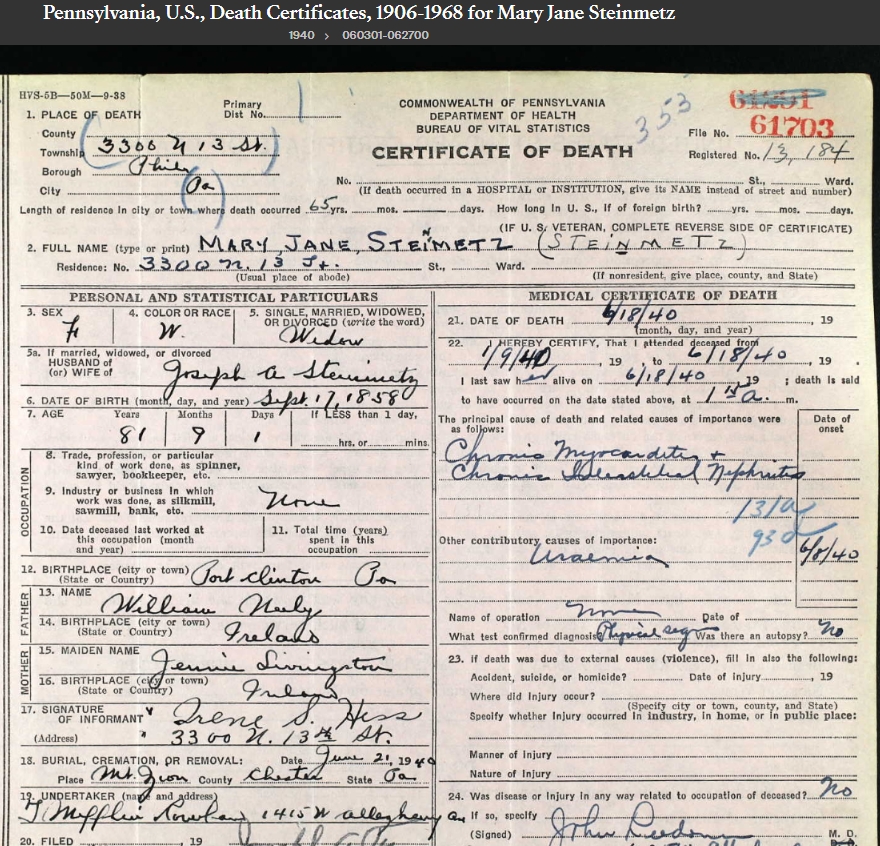 Pennsylvania, U.S., Death Certificates, 1906-1968 for Mary Jane Steinmetz
1940 > 060301-062700
HVS-5B—50M—9-38
1. PLACE OF DEATH
County
Township 3300 N 13 St.
Borough Phila
City Pa
Primary
Dist No.
COMMONWEALTH OF PENNSYLVANIA
DEPARTMENT OF HEALTH
BUREAU OF VITAL STATISTICS
CERTIFICATE OF DEATH
353
File No. 61703
Registered No. 13,184
No. St., Ward.
(If death occurred in a HOSPITAL or INSTITUTION, give its NAME instead of street and number)
Length of residence in city or town where death occurred 65 yrs. mos. days. How long in U. S., if of foreign birth? yrs. mos. days.
(IF U. S. VETERAN, COMPLETE REVERSE SIDE OF CERTIFICATE)
2. FULL NAME (type or print) MARY JANE STEINMETZ (STEINMETZ)
Residence: No. 3300 N. 13 St. St., Ward.
(Usual place of abode) (If nonresident, give place, county, and State)
PERSONAL AND STATISTICAL PARTICULARS
3. SEX F
4. COLOR OR RACE W.
5. SINGLE, MARRIED, WIDOWED, OR DIVORCED (write the word) Widow
5a. If married, widowed, or divorced
HUSBAND of
(or) WIFE of Joseph A Steinmetz
6. DATE OF BIRTH (month, day, and year) Sept. 17, 1858
7. AGE Years Months Days If LESS than 1 day,
81 9 1 hrs. or mins.
OCCUPATION
8. Trade, profession, or particular
kind of work done, as spinner,
sawyer, bookkeeper, etc.
9. Industry or business in which
work was done, as silkmill,
sawmill, bank, etc. None
10. Date deceased last worked at
this occupation (month
and year)
11. Total time (years)
spent in this
occupation
12. BIRTHPLACE (city or town) Port Clinton Pa
(State or Country)
FATHER
13. NAME William Neely
14. BIRTHPLACE (city or town)
(State or Country) Ireland
MOTHER
15. MAIDEN NAME Jennie Livingston
16. BIRTHPLACE (city or town)
(State or Country) Ireland
17. SIGNATURE
OF INFORMANT Irene S. Hess
(Address) 3300 N. 13th St.
18. BURIAL, CREMATION, OR REMOVAL: Date June 21, 1940
Place Mt. Zion County Chester State Pa
19. UNDERTAKER (name and address)
1415 W Allegheny
20. FILED , 19
MEDICAL CERTIFICATE OF DEATH
21. DATE OF DEATH 6/18/40 , 19
(month, day, and year)
22. I HEREBY CERTIFY, That I attended deceased from
1/9/40 , 19 , to 6/18/40 , 19 .
I last saw her alive on 6/18/40 19 ; death is said
to have occurred on the date stated above, at a. m.
The principal cause of death and related causes of importance were
as follows:
Date of
onset
Chronic Myocarditis +
Chronic Interstitial Nephritis
131a
93d
Other contributory causes of importance:
Uraemia 6/8/40
Name of operation None Date of
What test confirmed diagnosis Physical sign Was there an autopsy? No
23. If death was due to external causes (violence), fill in also the following:
Accident, suicide, or homicide? Date of Injury , 19
Where did Injury occur?
(Specify city or town, county, and State)
Specify whether Injury occurred in industry, in home, or in public place:
Manner of Injury
Nature of Injury
24. Was disease or Injury in any way related to occupation of deceased? No
If so, specify
(Signed) John M. D.